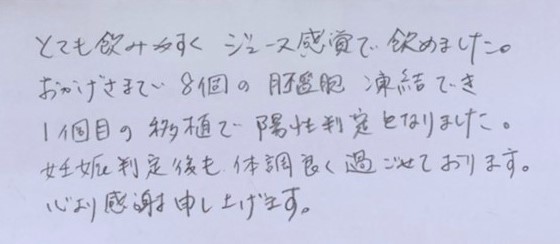 とても飲みやすく ジュース感覚で飲めました。
おかげさまで 8個の 胚盤胞 凍結でき
1個目の移植で陽性判定となりました。
妊娠判定後も 体調良く過ごせております。
心より感謝申し上げます。